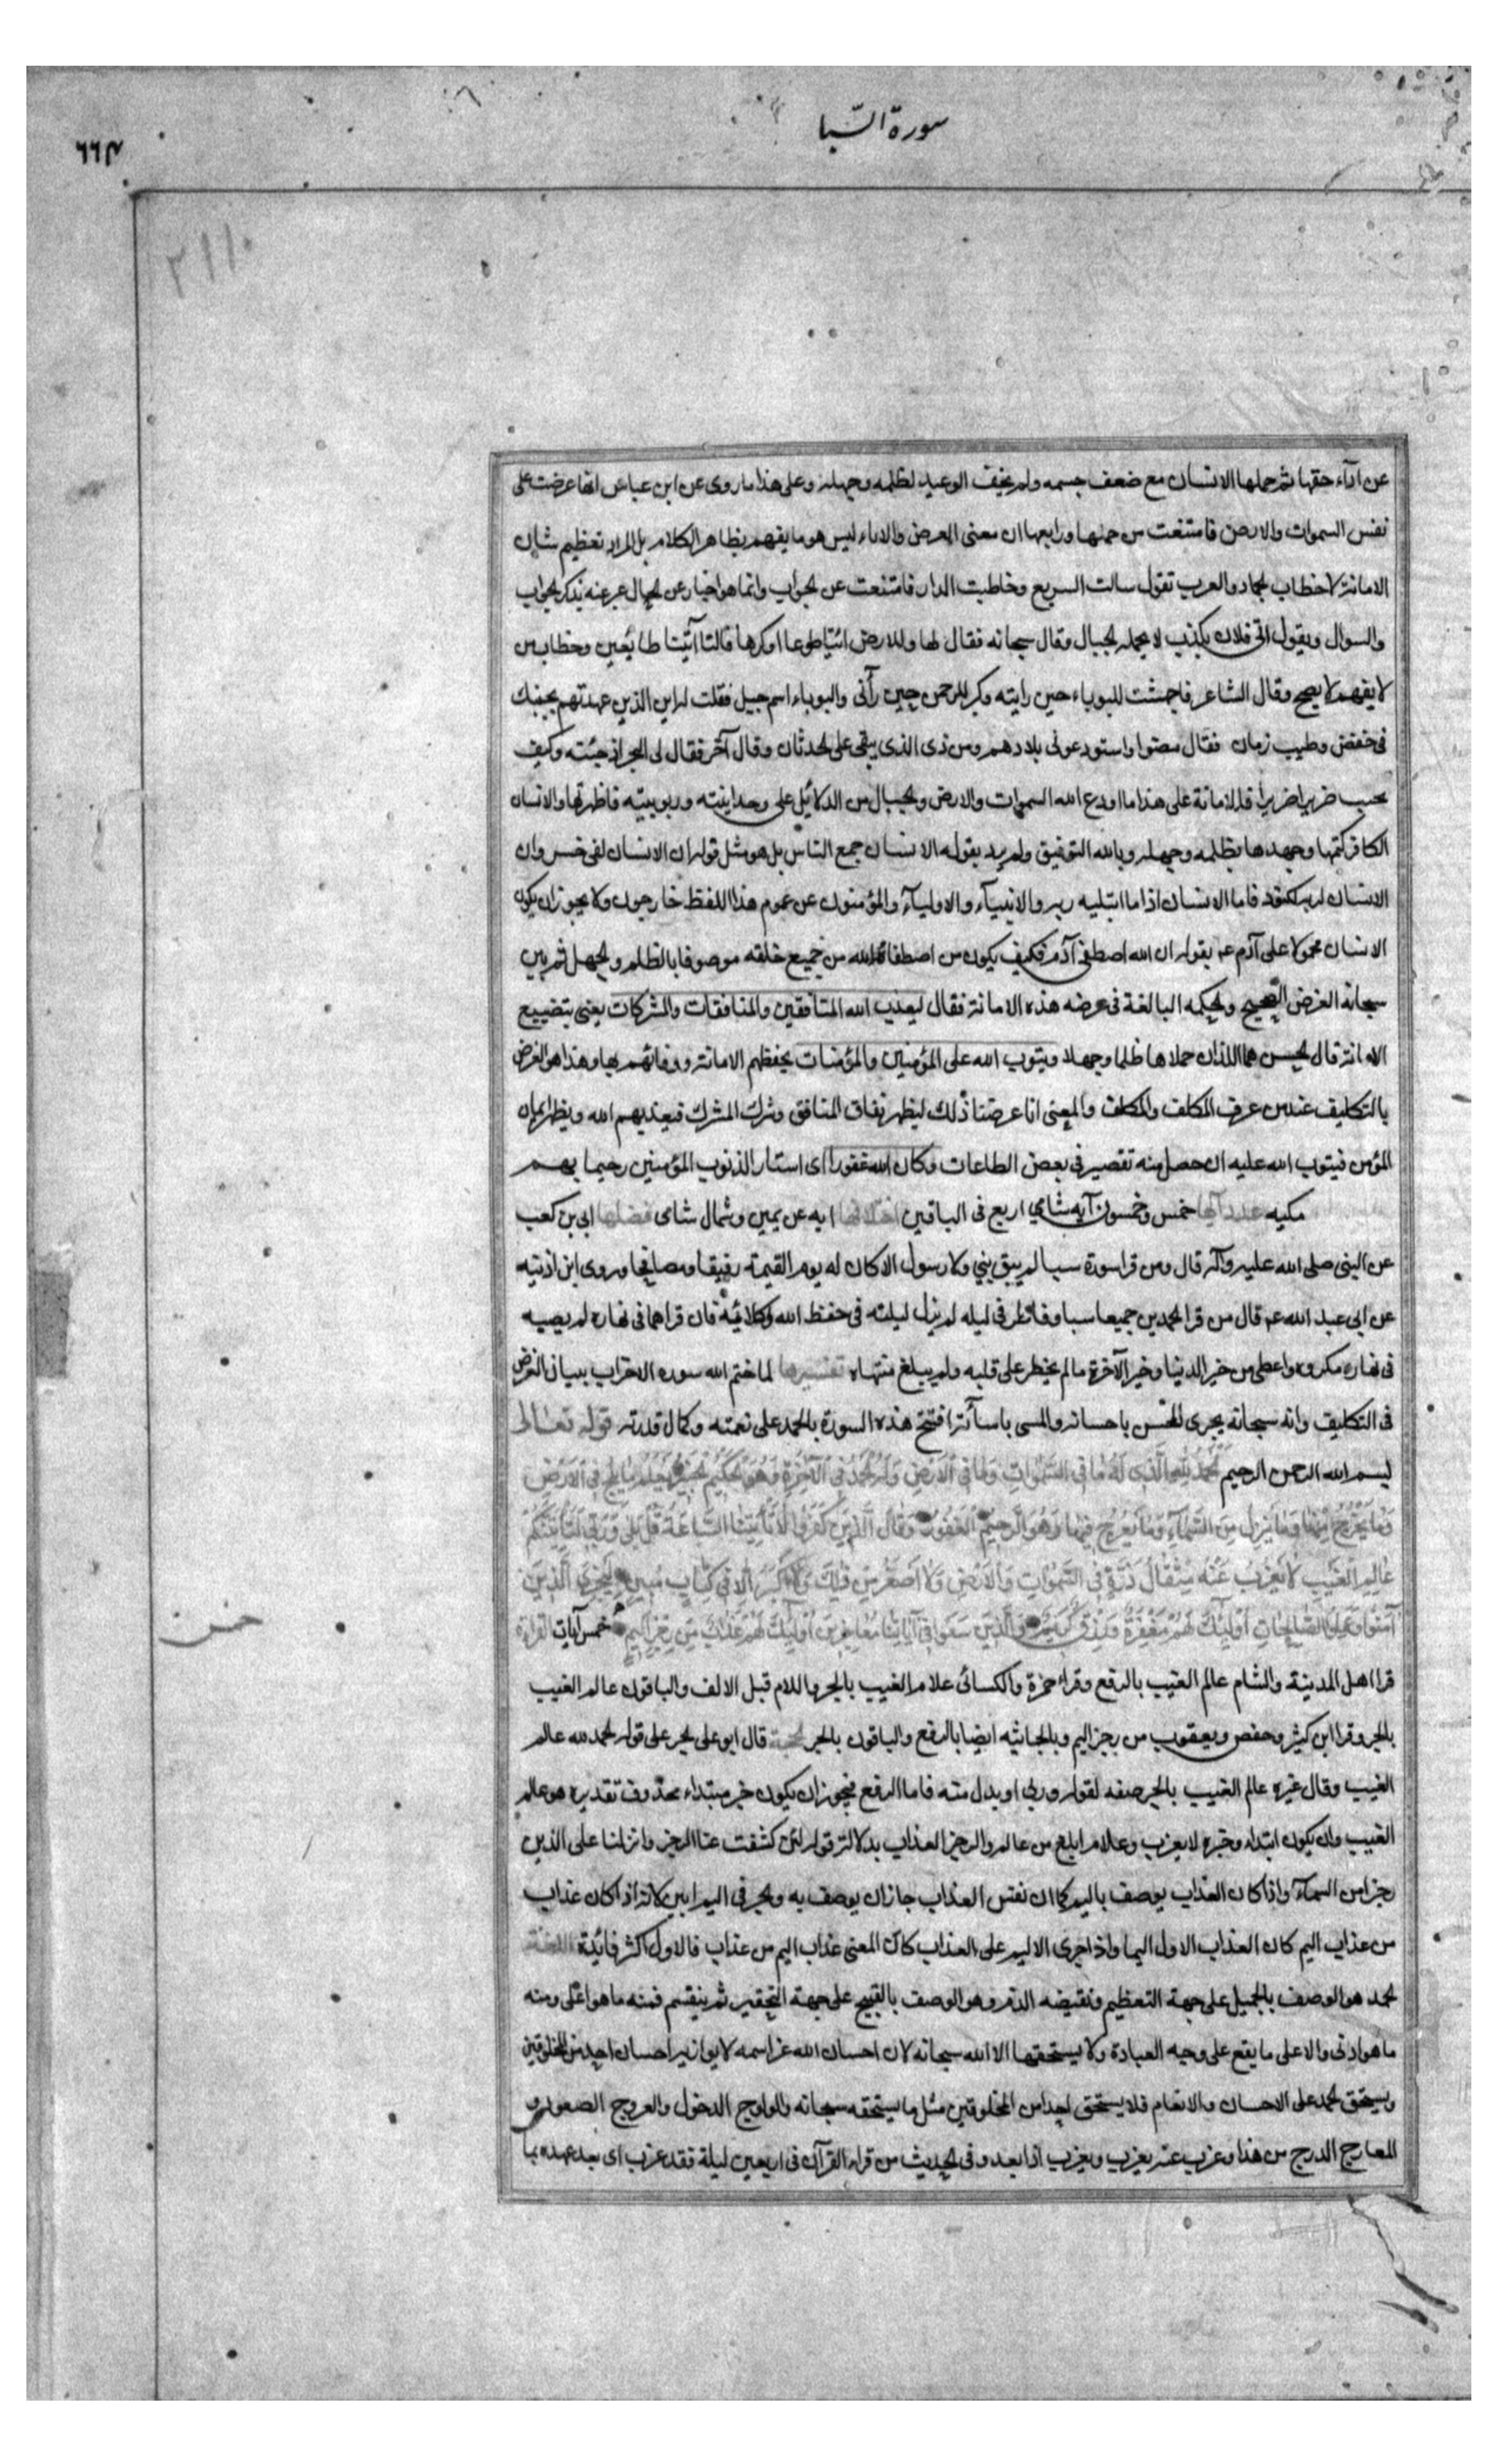 سورة السّبا
٦٦٣
٢١١٠
عن ادآء حقها ثم حملها الانسان مع ضعف جسمه ولم يخف الوعيد لظلمه وجهله وعلى هذا ما روى عن ابن عباس انها عرضت على
نفس السموات والارض فامتنعت من حملها ورابعها ان معنى العرض والاباء ليس هو ما يفهم بظاهر الكلام بل المراد تعظيم شان
الامانة لا خطاب لجماد والعرب تقول سالت الربع وخاطبت الدار فامتنعت عن لجواب وانما هو اخبار عن لحال عبر عنه بذكر لجواب
والسوال ويقول اتى فلان بكذب لا يحمله لجبال وقال سبحانه فقال لها وللارض ائتيا طوعا او كرها قالتا آتينا طايعين وخطاب من
لا يفهم لا يصح وقال الشاعر فاجهشت للبوباء حين رايته وكبر للرحمن حين رآنى والبوباء اسم جبل فقلت له اين الذين عهدتهم بجنبك
فى خفض وطيب زمان فقال مضوا واستودعونى بلادهم ومن ذى الذى يبقى على لحدثان وقال آخر فقال لى البحر اذ جئته وكيف
يجيب ضرير اضريرا فالامانة على هذا ما اودع الله السموات والارض ولجبال من الدلائل على وحدانيته وربوبيته فاظهرتها والانسان
الكافر كتمها وجحدها بظلمه وجهله وبالله التوفيق ولم يرد بقوله الانسان جمع الناس بل هو مثل قوله ان الانسان لفى خسر وان
الانسان لربه لكنود فاما الانسان اذا ما ابتليه ربه والانبيآء والاوليآء والمؤمنون عن عموم هذا اللفظ خارجون ولا يجوز ان يكون
الانسان محمولا على آدم عم بقوله ان الله اصطفى آدم فكيف يكون من اصطفاه الله من جميع خلقه موصوفا بالظلم ولجهل ثم بين
سبحانه الغرض الصحيح ولحكمه البالغة فى عرضه هذه الامانة فقال ليعذب الله المنافقين والمنافقات والمشركات يعنى بتضييع
الامانة قال لحسن هما اللذان حملاها ظلما وجهلا ويتوب الله على المؤمنين والمؤمنات بحفظهم الامانة ووفائهم بها وهذا هو الغرض
بالتكليف عند من عرف المكلف والمكلف والمعنى انا عرضنا ذلك ليظهر نفاق المنافق وشرك المشرك فيعذبهم الله ويظهر ايمان
المؤمن فيتوب الله عليه ان حصل منه تقصير فى بعض الطاعات وكان الله غفورا اى استار الذنوب المؤمنين رحيما بهم
مكيه عدد آيها خمس وخمسون آيه شامي اربع فى الباقين اختلافها ايه عن يمين وشمال شامى فضلها ابى بن كعب
عن النبى صلى الله عليه وآله قال ومن قرا سورة سبا لم يبق نبي ولا رسول الا كان له يوم القيمة رفيقا ومصافحا وروى ابن اذنيه
عن ابى عبد الله عم قال من قرا لحمدين جميعا سبا وفاطر فى ليله لم يزل ليلته فى حفظ الله وكلائيه فان قراهما فى نهاره لم يصيبه
فى نهاره مكروه واعطى من خير الدنيا وخير الآخرة ما لم يخطر على قلبه ولم يبلغ منتهاه تفسيرها لما ختم الله سوره الاحزاب ببيان الغرض
فى التكليف وانه سبحانه يجرى المحسن باحسانه والمسى باسآئه افتتح هذه السورة بالحمد على نعمته وكمال قدرته قوله تعالى
بسم الله الرحمن الرحيم لحمد لله الذى له ما فى السموات وما فى الارض وله لحمد فى الآخرة وهو لحكيم لخبير يعلم ما يلج فى الارض
وما يخرج منها وما ينزل من السمآء وما يعرج فيها وهو الرحيم الغفور وقال الذين كفروا لا تأتينا الساعة قل بلى وربى لتأتينكم
عالم الغيب لا يعزب عنه مثقال ذرة فى السموات ولا فى الارض ولا اصغر من ذلك ولا اكبر الا فى كتاب مبين ليجزى الذين
آمنوا وعملوا الصالحات اولئك لهم مغفرة ورزق كريم والذين سعوا فى آياتنا معاجزين اولئك لهم عذاب من رجز اليم خمس آيات القراءة
خمس
قرا اهل المدينة والشام عالم الغيب بالرفع وقراء حمزة والكسائى علام الغيب بالجر واللام قبل الالف والباقون عالم الغيب
بالجر وقرا ابن كثير وحفص ويعقوب من رجز اليم وبالجاثيه ايضا بالرفع والباقون بالجر لحجة قال ابو على لجر على قوله لحمد لله عالم
الغيب وقال غيره عالم الغيب بالجر صفه لقوله وربى او بدل منه فاما الرفع فيجوز ان يكون خبر مبتداء محذوف تقديره هو عالم
الغيب وان يكون ابتداء وخبره لا يعزب وعلام ابلغ من عالم والرجز العذاب بدلالة قوله لئن كشفت عنا الرجز وانزلنا على الذين
رجزا من السمآء واذا كان العذاب يوصف باليم كما ان نفس العذاب جاز ان يوصف به ولجر فى اليم ابين لانه اذا كان عذاب
من عذاب اليم كان العذاب الاول اليما واذا جرى الاليم على العذاب كان المعنى عذاب اليم من عذاب فالاول اكثر فائدة اللغة
لحمد هو الوصف بالجميل على جهة التعظيم ونقيضه الذم وهو الوصف بالقبيح على جهة التحقير ثم ينقسم فمنه ما هو اعلى ومنه
ما هو ادنى والاعلى ما يقع على وجه العبادة ولا يستحقها الا الله سبحانه لان احسان الله عز اسمه لا يوازيه احسان احد من المخلوقين
ويستحق لحمد على الاحسان والانعام فلا يستحق احد من المخلوقين مثل ما يستحقه سبحانه والولوج الدخول والعروج الصعود و
المعارج الدرج من هذا وعزب عنه يعزب ويعزب اذا بعد وفى لحديث من قراء القرآن فى اربعين ليلة فقد عزب اى بعد عهده بما